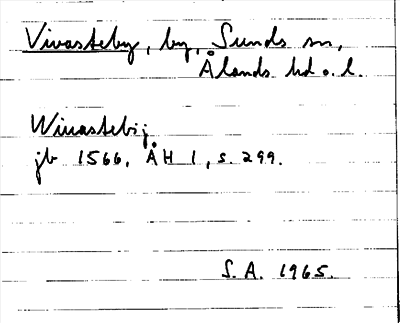 Vivasteby, by, Sunds sn,
Ålands hd o. l.
Wiuastebij
jb 1566, ÅH 1, s. 299.
S. A. 1965.